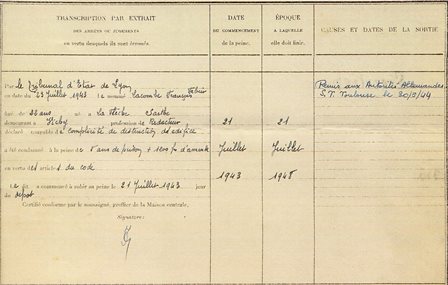 TRANSCRIPTION PAR EXTRAIT
DES ARRÊTS OU JUGEMENTS
en vertu desquels ils sont écroués.
DATE
DU COMMENCEMENT
de la peine.
ÉPOQUE
A LAQUELLE
elle doit finir.
CAUSES ET DATES DE LA SORTIE
Par le Tribunal d'Etat de Lyon
en date du 23 Juillet 1943 le nommé Lacombe François Fabien
âgé de ans né à La Flèche Sarthe
demeurant à Vichy profession de Rédacteur
déclaré coupable de complicité de destruction d'édifice
a été condamné à la peine de 5 ans de prison + d'amende
en vertu des articles du code
Le dit a commencé à subir sa peine le 21 Juillet 1943 jour
du dépôt
Certifié conforme par le soussigné, greffier de la Maison centrale.
Signature:
21
Juillet
1943
21
Juillet
1948
Remis aux Autorités Allemandes
S.T. Toulouse le 30/5/44